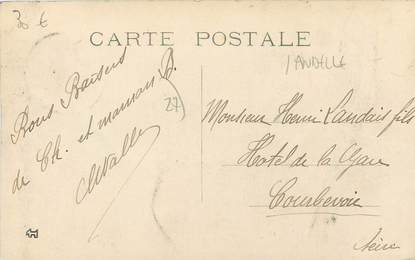 30 €
CARTE POSTALE
/ ANDELLE
27
Bons Baisers
de Ch. et maman B.
Monsieur Henri Landais fils
Hotel de la Gare
Courbevoie
Seine